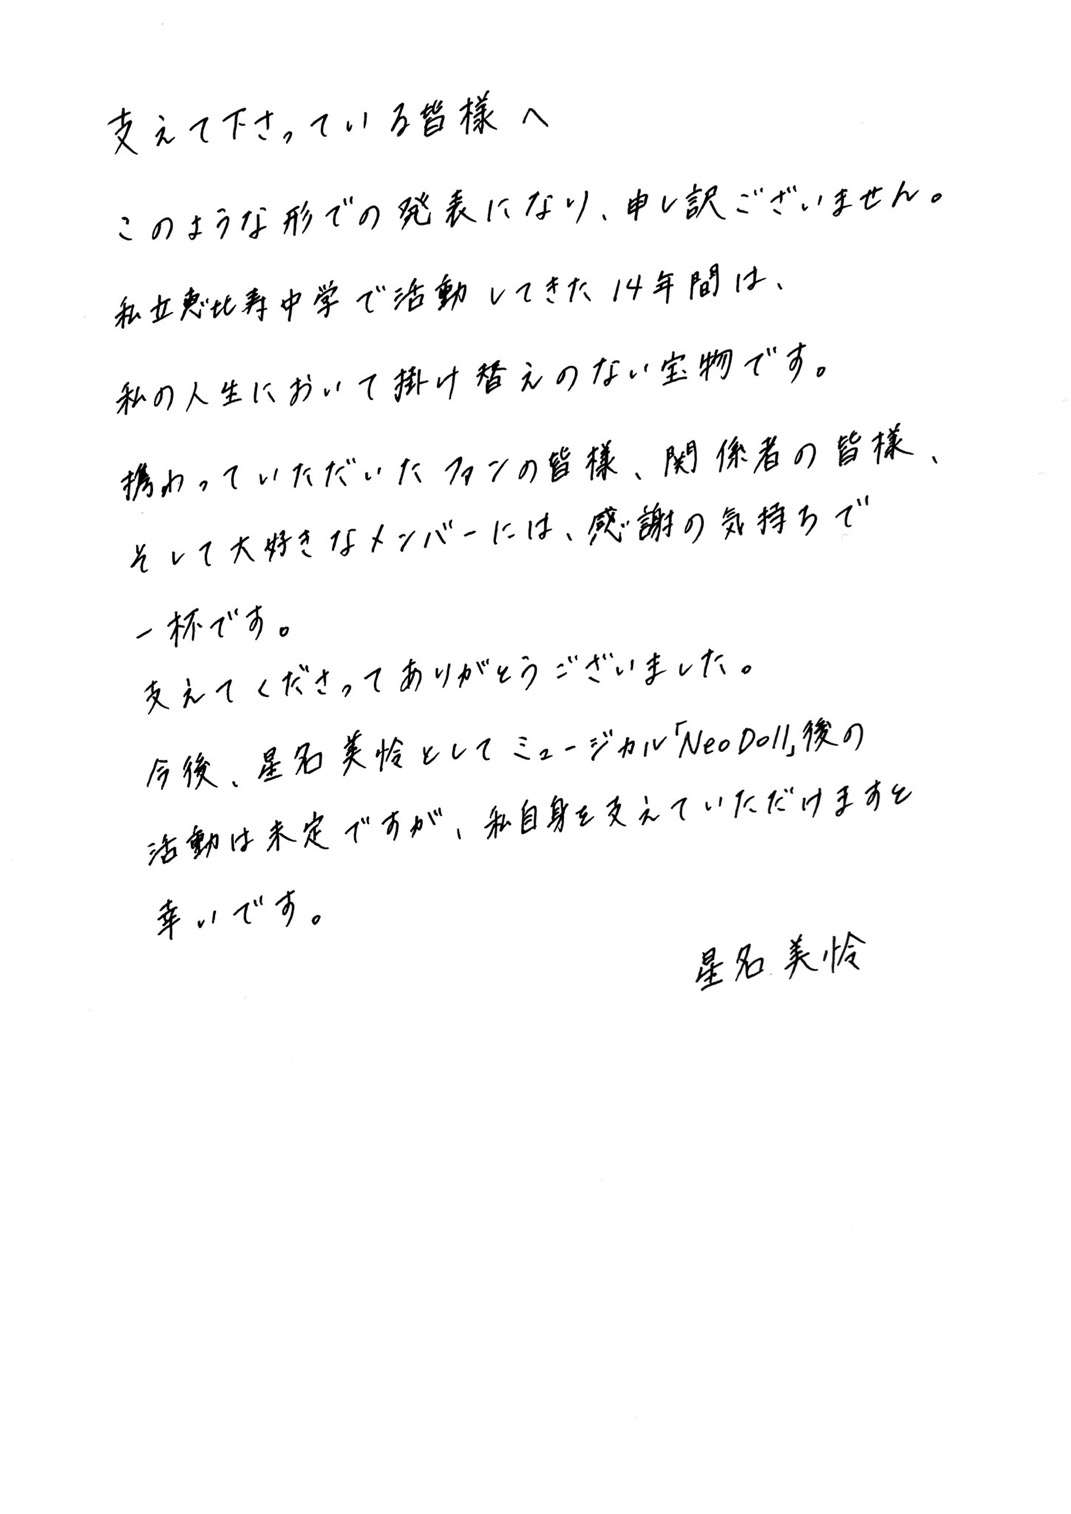 支えて下さっている皆様へ
このような形での発表になり、申し訳ございません。
私立恵比寿中学で活動してきた14年間は、
私の人生において掛け替えのない宝物です。
携わっていただいたファンの皆様、関係者の皆様、
そして大好きなメンバーには、感謝の気持ちで
一杯です。
支えてくださってありがとうございました。
今後、星名美怜としてミュージカル「NeoDoll」後の
活動は未定ですが、私自身を支えていただけますと
幸いです。
星名美怜